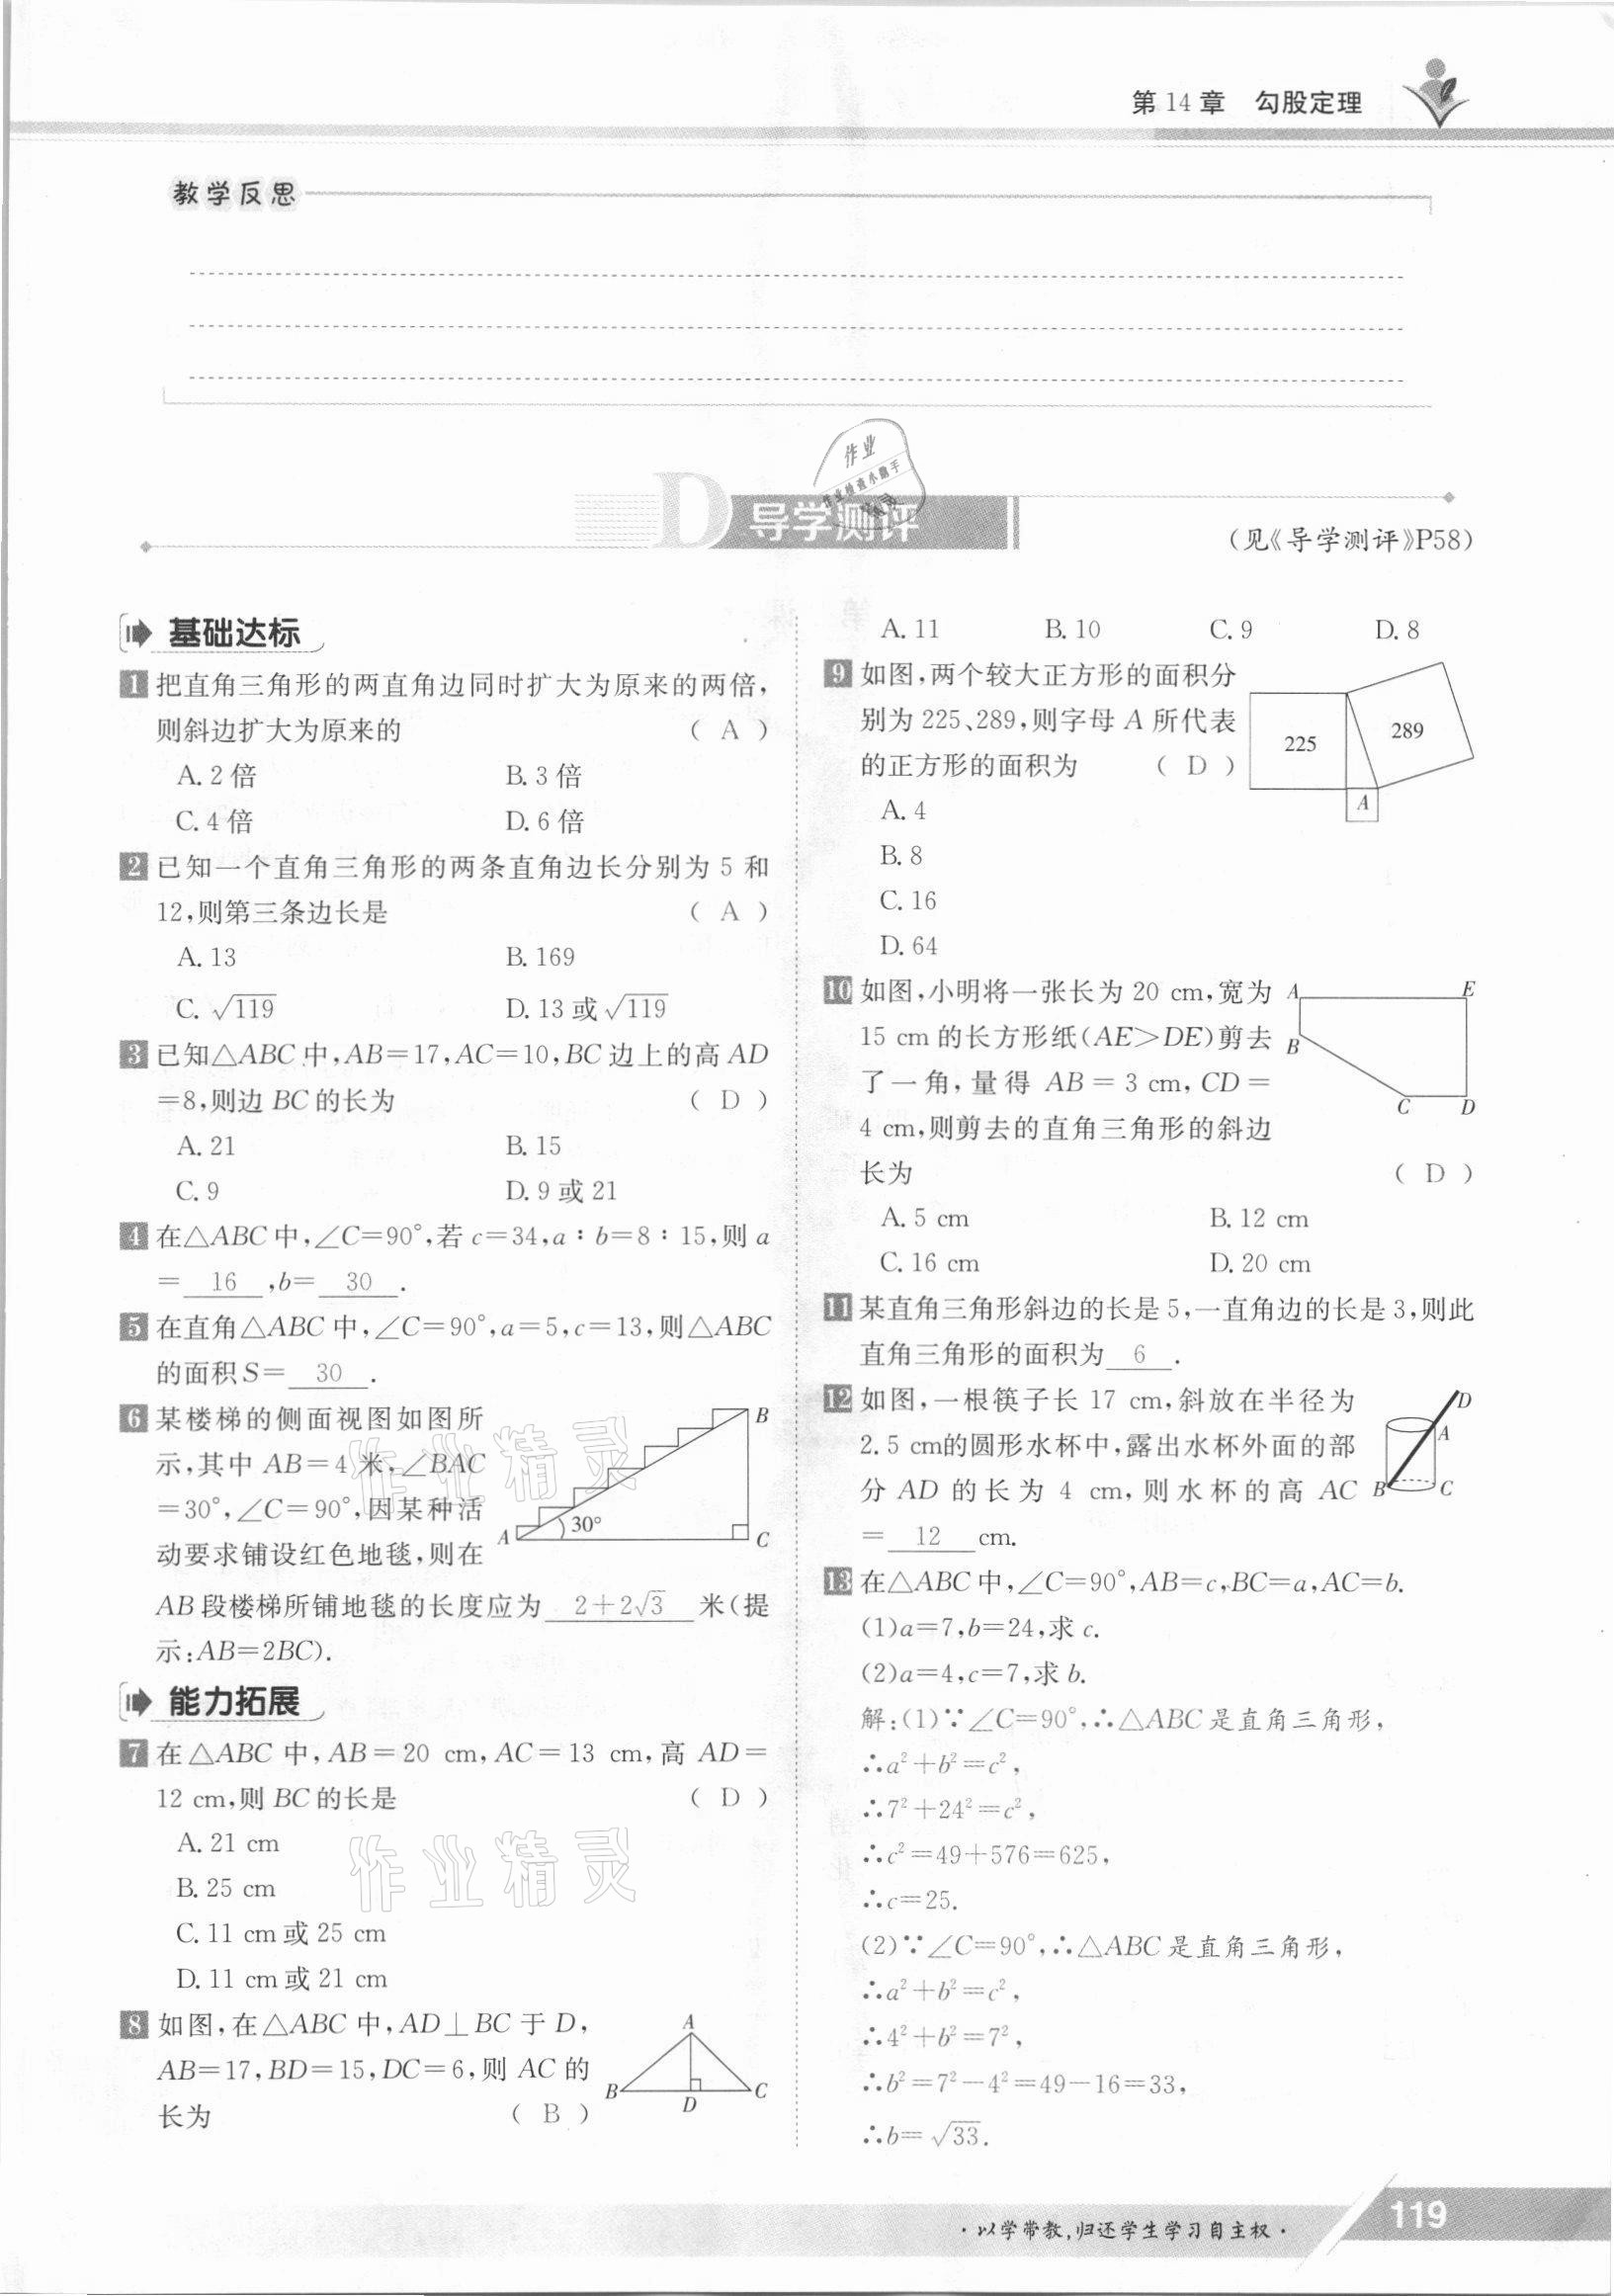 第 14 章　勾股定理
教学反思
D 导学测评
作业
作业检查小助手
精灵
(见《导学测评》P58)
基础达标
1 把直角三角形的两直角边同时扩大为原来的两倍，
则斜边扩大为原来的 ( A )
A. 2 倍 B. 3 倍
C. 4 倍 D. 6 倍
2 已知一个直角三角形的两条直角边长分别为 5 和
12，则第三条边长是 ( A )
A. 13 B. 169
C. √119 D. 13 或 √119
3 已知△ABC 中，AB=17，AC=10，BC 边上的高 AD
=8，则边 BC 的长为 ( D )
A. 21 B. 15
C. 9 D. 9 或 21
4 在△ABC 中，∠C=90°，若 c=34，a∶b=8∶15，则 a
= 16 ，b= 30 .
5 在直角△ABC 中，∠C=90°，a=5，c=13，则△ABC
的面积 S= 30 .
6 某楼梯的侧面视图如图所
示，其中 AB=4 米，∠BAC
=30°，∠C=90°，因某种活
动要求铺设红色地毯，则在
AB 段楼梯所铺地毯的长度应为 2+2√3 米(提
示：AB=2BC).
A 30° B C
作业精灵
能力拓展
7 在△ABC 中，AB=20 cm，AC=13 cm，高 AD=
12 cm，则 BC 的长是 ( D )
A. 21 cm
B. 25 cm
C. 11 cm 或 25 cm
D. 11 cm 或 21 cm
作业精灵
8 如图，在△ABC 中，AD⊥BC 于 D，
AB=17，BD=15，DC=6，则 AC 的
长为 ( B )
A B D C
A. 11 B. 10 C. 9 D. 8
9 如图，两个较大正方形的面积分
别为 225、289，则字母 A 所代表
的正方形的面积为 ( D )
A. 4
B. 8
C. 16
D. 64
225 289 A
10 如图，小明将一张长为 20 cm，宽为
15 cm 的长方形纸(AE>DE)剪去
了一角，量得 AB=3 cm，CD=
4 cm，则剪去的直角三角形的斜边
长为 ( D )
A E B C D
A. 5 cm B. 12 cm
C. 16 cm D. 20 cm
11 某直角三角形斜边的长是 5，一直角边的长是 3，则此
直角三角形的面积为 6 .
12 如图，一根筷子长 17 cm，斜放在半径为
2.5 cm的圆形水杯中，露出水杯外面的部
分 AD 的长为 4 cm，则水杯的高 AC
= 12 cm.
D A B C
13 在△ABC 中，∠C=90°，AB=c，BC=a，AC=b.
(1)a=7，b=24，求 c.
(2)a=4，c=7，求 b.
解：(1)∵∠C=90°，∴△ABC 是直角三角形，
∴a²+b²=c²，
∴7²+24²=c²，
∴c²=49+576=625，
∴c=25.
(2)∵∠C=90°，∴△ABC 是直角三角形，
∴a²+b²=c²，
∴4²+b²=7²，
∴b²=7²-4²=49-16=33，
∴b=√33.
·以学带教，归还学生学习自主权·
119